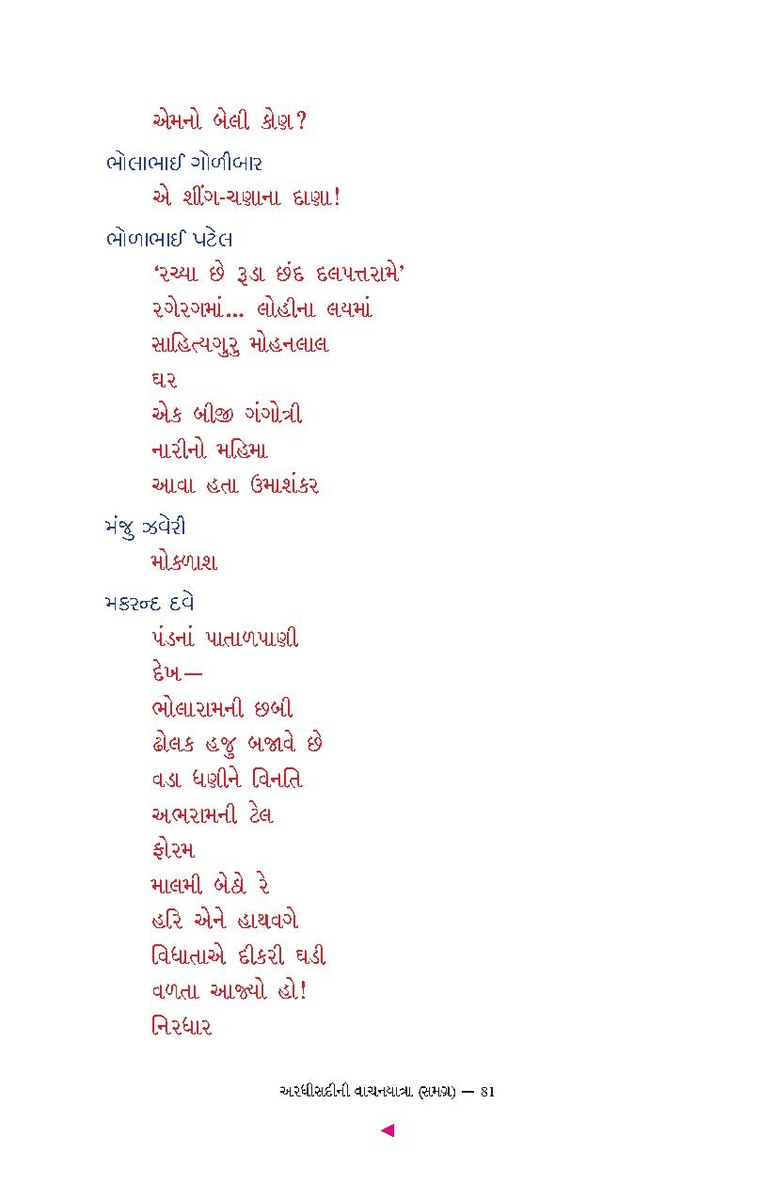 એમનો બેલી કોણ?
ભોલાભાઈ ગોળીબાર
એ શીંગ-ચણાના દાણા!
ભોળાભાઈ પટેલ
‘રચ્યા છે રૂડા છંદ દલપત્તરામે’
રગેરગમાં... લોહીના લયમાં
સાહિત્યગુરુ મોહનલાલ
ઘર
એક બીજી ગંગોત્રી
નારીનો મહિમા
આવા હતા ઉમાશંકર
મંજુ ઝવેરી
મોકળાશ
મકરન્દ દવે
પંડનાં પાતાળપાણી
દેખ—
ભોલારામની છબી
ઢોલક હજુ બજાવે છે
વડા ધણીને વિનતિ
અભરામની ટેલ
ફોરમ
માલમી બેઠો રે
હરિ એને હાથવગે
વિધાતાએ દીકરી ઘડી
વળતા આજ્યો હો!
નિરધાર
અરધીસદીની વાચનયાત્રા (સમગ્ર) — 81